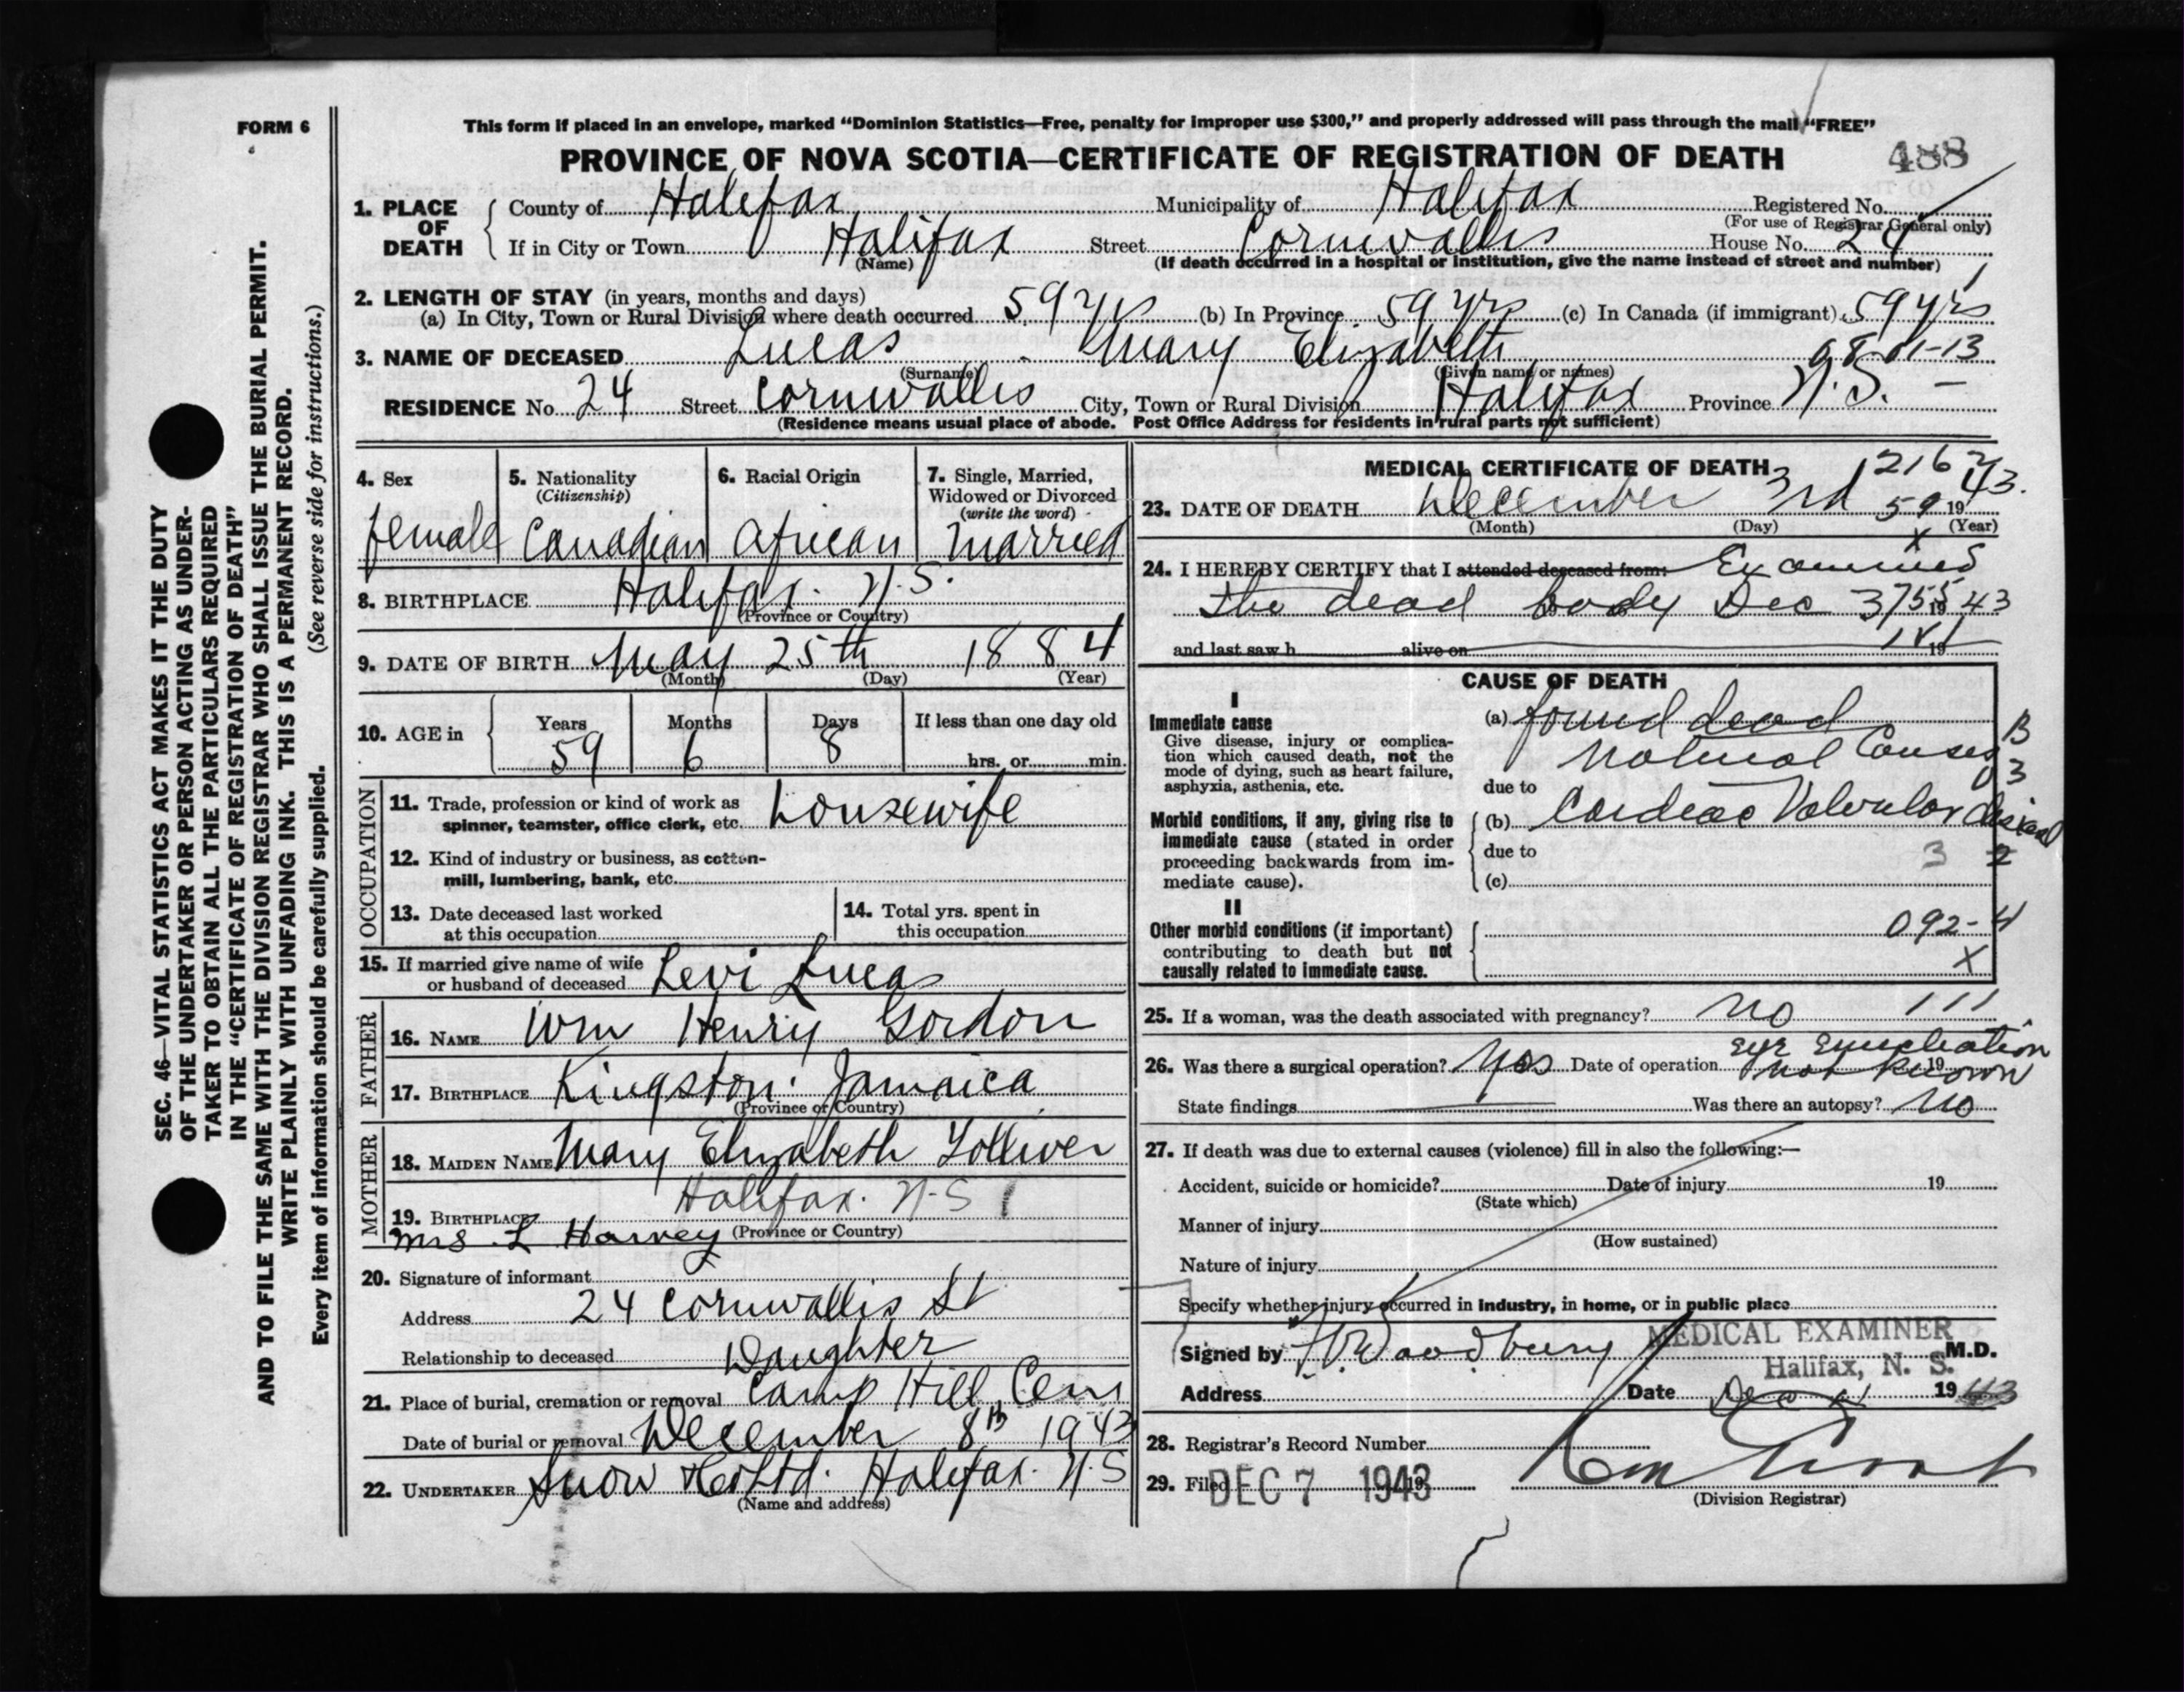 FORM 6
This form if placed in an envelope, marked “Dominion Statistics—Free, penalty for improper use $300,” and properly addressed will pass through the mail “FREE”
PROVINCE OF NOVA SCOTIA—CERTIFICATE OF REGISTRATION OF DEATH 488
1. PLACE OF DEATH
County of Halifax Municipality of Halifax Registered No.
(For use of Registrar General only)
If in City or Town Halifax Street Cornwallis House No. 24
(Name) (If death occurred in a hospital or institution, give the name instead of street and number)
2. LENGTH OF STAY (in years, months and days)
(a) In City, Town or Rural Division where death occurred 59 yrs (b) In Province 59 yrs (c) In Canada (if immigrant) 59 yrs
3. NAME OF DECEASED Lucas Mary Elizabeth 08-01-13
(Surname) (Given name or names)
RESIDENCE No. 24 Street Cornwallis City, Town or Rural Division Halifax Province N.S.
(Residence means usual place of abode. Post Office Address for residents in rural parts not sufficient)
4. Sex
female
5. Nationality
(Citizenship)
Canadian
6. Racial Origin
African
7. Single, Married,
Widowed or Divorced
(write the word)
Married
8. BIRTHPLACE Halifax. N.S.
(Province or Country)
9. DATE OF BIRTH May 25th 1884
(Month) (Day) (Year)
10. AGE in Years Months Days If less than one day old
59 6 8 hrs. or min.
OCCUPATION
11. Trade, profession or kind of work as
spinner, teamster, office clerk, etc. housewife
12. Kind of industry or business, as cotton-
mill, lumbering, bank, etc.
13. Date deceased last worked
at this occupation
14. Total yrs. spent in
this occupation
15. If married give name of wife
or husband of deceased Levi Lucas
FATHER
16. NAME Wm Henry Gordon
17. BIRTHPLACE Kingston. Jamaica
(Province or Country)
MOTHER
18. MAIDEN NAME Mary Elizabeth Tolliver
19. BIRTHPLACE Halifax. N-S
(Province or Country)
Mrs. L Harvey
20. Signature of informant
Address 24 Cornwallis St
Relationship to deceased Daughter
21. Place of burial, cremation or removal Camp Hill Cem
Date of burial or removal December 8th 1943
22. UNDERTAKER Snow & Co Ltd. Halifax. N.S
(Name and address)
MEDICAL CERTIFICATE OF DEATH
23. DATE OF DEATH December 3rd 1943.
(Month) (Day) (Year)
24. I HEREBY CERTIFY that I attended deceased from: Examined
the dead body Dec 3 1943
and last saw h alive on 19
CAUSE OF DEATH
I
Immediate cause
Give disease, injury or complica-
tion which caused death, not the
mode of dying, such as heart failure,
asphyxia, asthenia, etc.
(a) found dead
Natural Causes
due to
Morbid conditions, if any, giving rise to
immediate cause (stated in order
proceeding backwards from im-
mediate cause).
(b) Cardiac Valvular disease
due to
(c)
II
Other morbid conditions (if important)
contributing to death but not
causally related to immediate cause.
092-4
X
25. If a woman, was the death associated with pregnancy? No
26. Was there a surgical operation? Yes Date of operation 19
eye enucleation
not known
State findings Was there an autopsy? No
27. If death was due to external causes (violence) fill in also the following:—
Accident, suicide or homicide? Date of injury 19
(State which)
Manner of injury
(How sustained)
Nature of injury
Specify whether injury occurred in industry, in home, or in public place
MEDICAL EXAMINER
Signed by Woodbury M.D.
Halifax, N. S.
Address Date Dec 1943
28. Registrar's Record Number
29. Filed DEC 7 1943
(Division Registrar)
SEC. 46—VITAL STATISTICS ACT MAKES IT THE DUTY
OF THE UNDERTAKER OR PERSON ACTING AS UNDER-
TAKER TO OBTAIN ALL THE PARTICULARS REQUIRED
IN THE “CERTIFICATE OF REGISTRATION OF DEATH”
AND TO FILE THE SAME WITH THE DIVISION REGISTRAR WHO SHALL ISSUE THE BURIAL PERMIT.
WRITE PLAINLY WITH UNFADING INK. THIS IS A PERMANENT RECORD.
Every item of information should be carefully supplied. (See reverse side for instructions.)